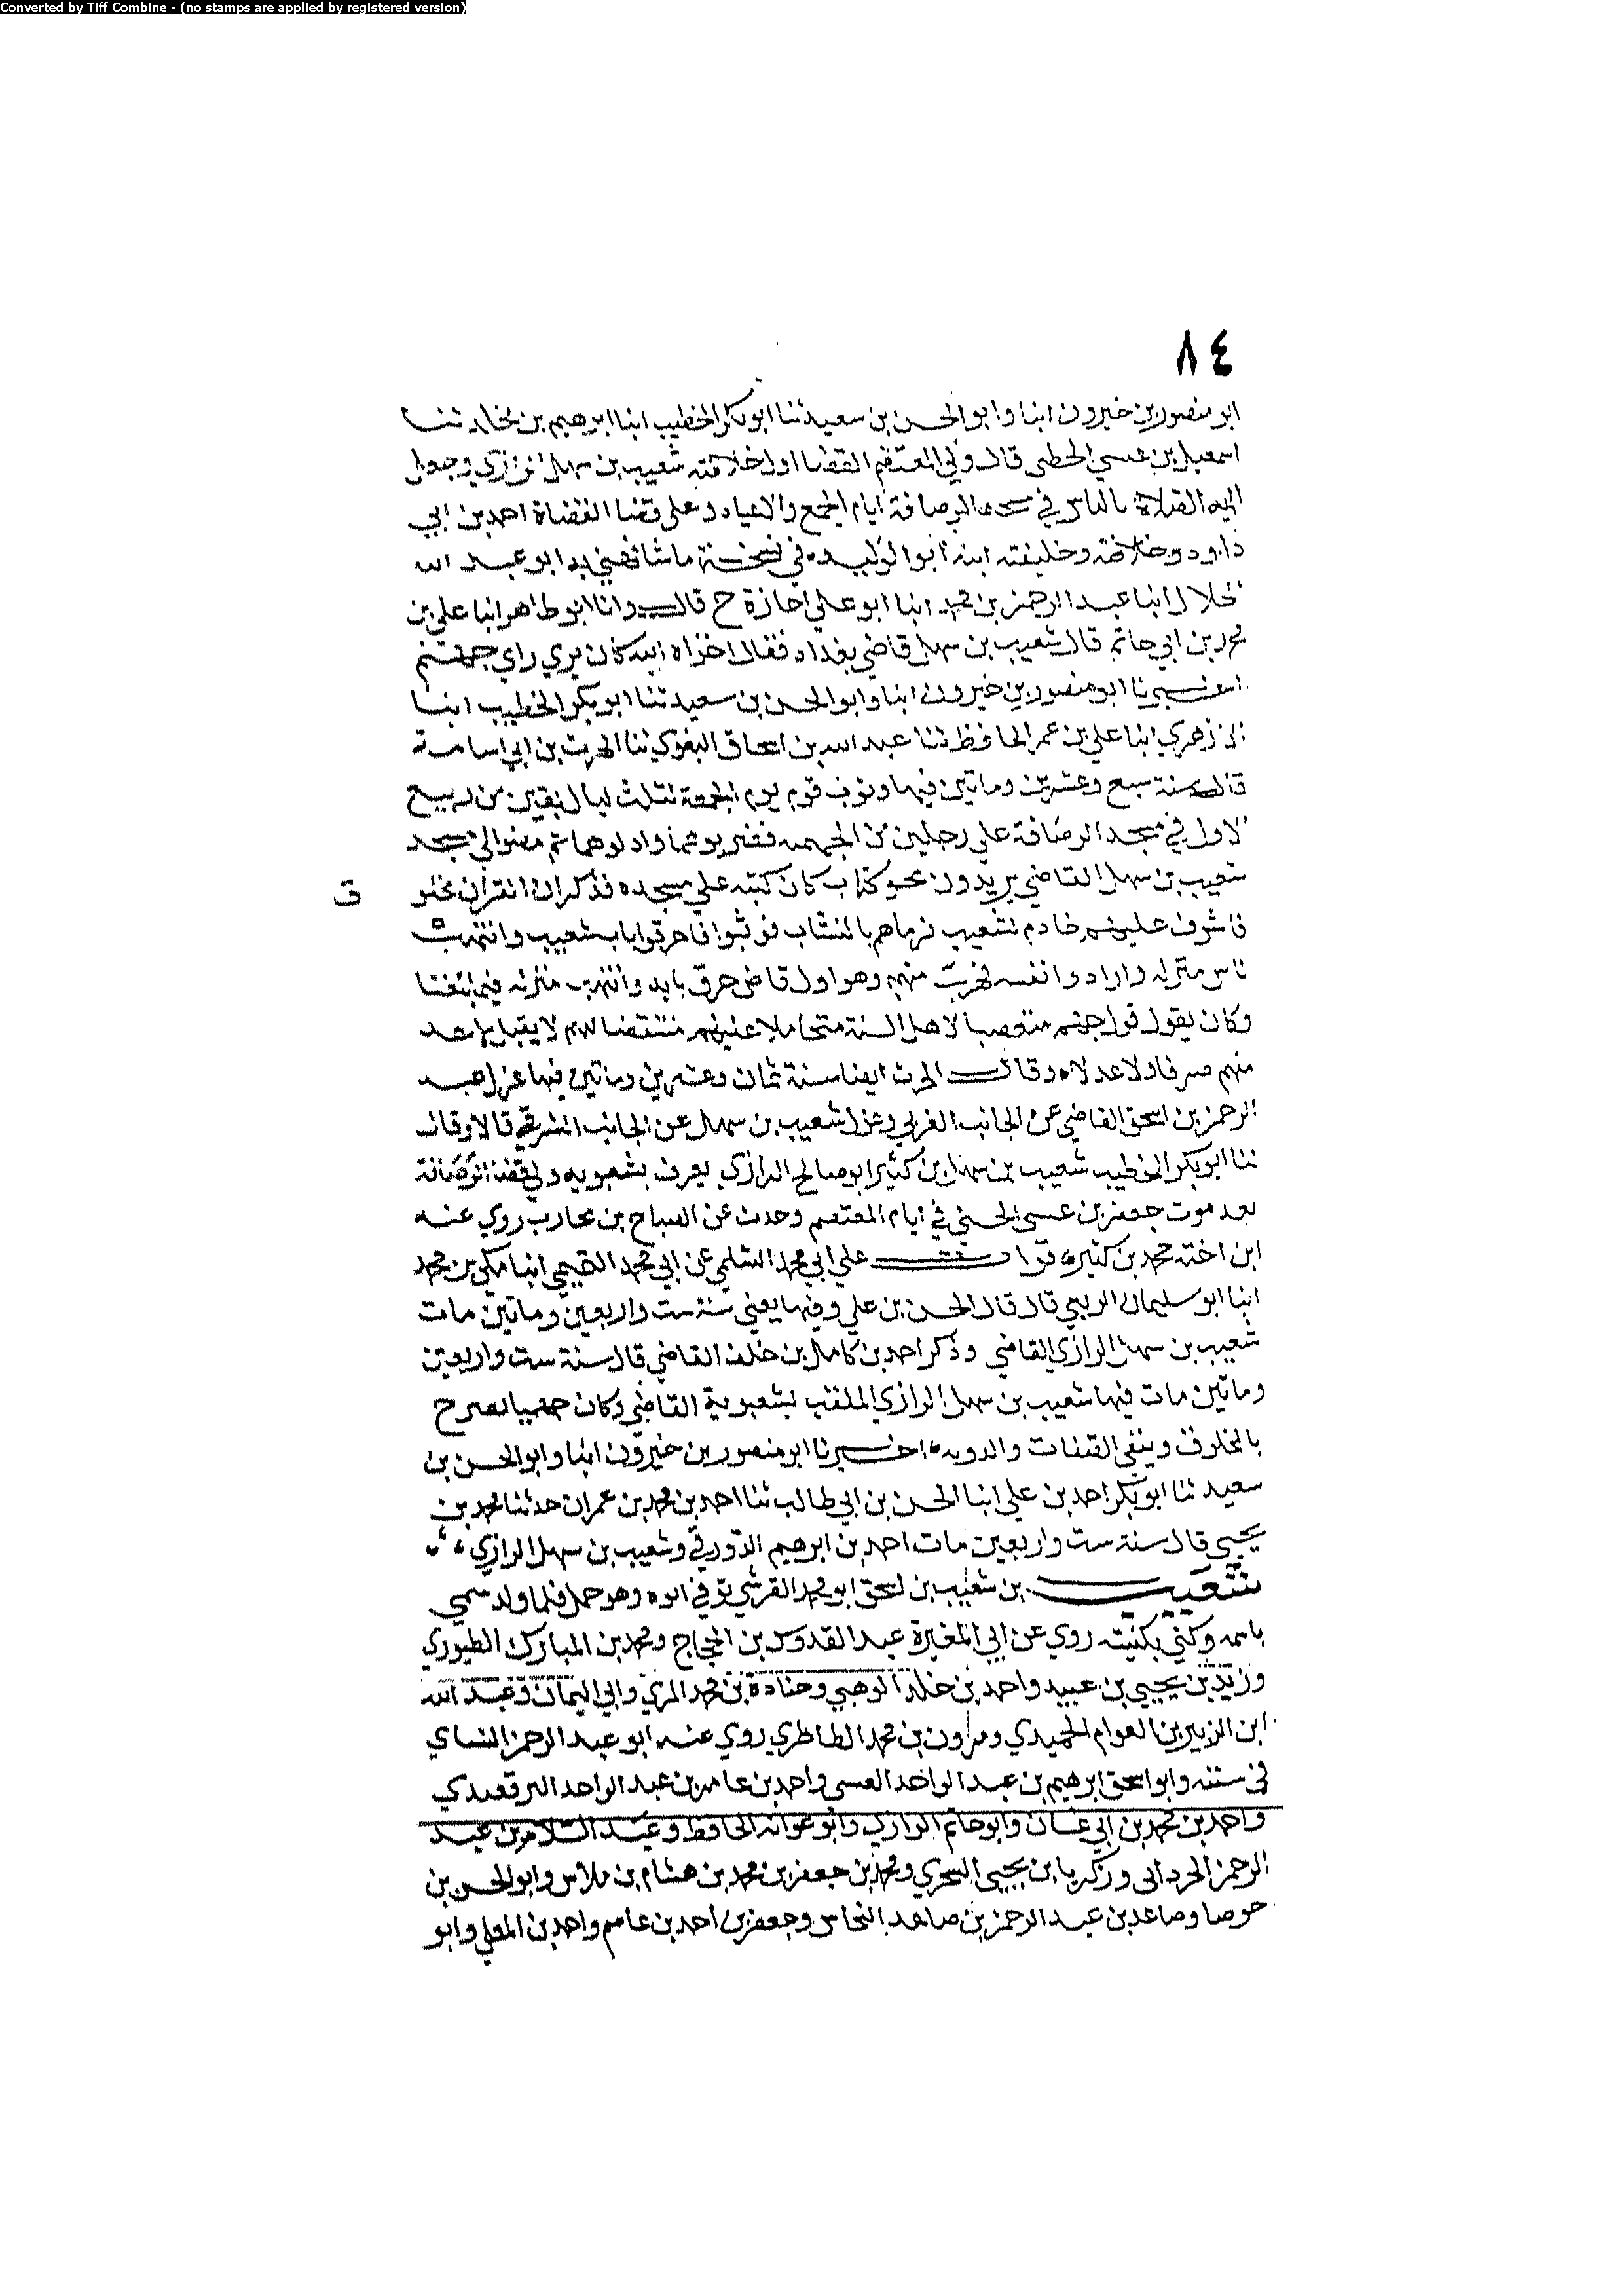 Converted by Tiff Combine - (no stamps are applied by registered version)
٨٤
ابو منصور بن خيرون انبا وابو الحسن بن سعيد ثنا ابو بكر الخطيب انبا ابرهيم بن مخلد ثنا
اسمعيل بن عسي الخطبى قال ولي المعتصم القضا اول خلافته شعيب بن سهل الرازي وجعل
اليه الصلاة بالناس في مسجد الرصافة ايام الجمع والاعياد وعلى قضا القضاة احمد بن ابي
داود وخلافته وخليفته ابنه ابو الوليد في نسخة ما شافهني به ابو عبد الله
الخلال انبا عبد الرحمن بن محمد انبا ابو علي اجازة ح قال وانا ابو طاهر انبا علي بن
محمد بن ابي حاتم قال شعيب بن سهل قاضي بغداد فقال اخزاه الله كان يري راي جهم
اخبرنا ابو منصور بن خيرون انبا وابو الحسن بن سعيد ثنا ابو بكر الخطيب انبا
الازهري انبا علي بن عمر الحافظ ثنا عبد الله بن اسحاق البغوي ثنا الحرث بن ابي اسامة
قال سنة سبع وعشرين وماتين فيها وثب قوم يوم الجمعة لثلث ليال بقين من ربيع
الاول في مسجد الرصافة علي رجلين من الجهميه فضربوهما واذلوهما ثم مضوا الي مسجد
شعيب بن سهل القاضي يريدون محو كتاب كان كتبه علي مسجده فذكر ان القران مخلو
ق
فاشرف عليهم خادم لشعيب فرماهم بالنشاب فوثبوا فاحرقوا باب شعيب وانتهبت
ناس منزله وارادوا نفسه فهرب منهم وهو اول قاض حرق بابه وانتهب منزله فيما بلغنا
وكان يقول قول جهم متعصبا لاهل السنة متحاملا عليهم منتقصا لهم لا يقبل لاحد
منهم صرفا ولا عدلا وقال الحرث ايضا سنة ثمان وعشرين وماتين فيها عزل عبد
الرحمن بن اسحق القاضي عن الجانب الغربي وعزل شعيب بن سهل عن الجانب الشرقي قالا وقال
ثنا ابو بكر الخطيب شعيب بن سهل بن كثير ابو صالح الرازي يعرف بشعبويه ولي قضا الرصافة
بعد موت جعفر بن عسى الحسني في ايام المعتصم وحدث عن الصباح بن محارب روي عنه
ابن اخته محمد بن كثير قرات علي ابي محمد السلمي عن ابي محمد التميمي انبا مكي بن محمد
انبا ابو سليمان الربعي قال قال الحسن بن علي وفيها يعني سنة ست واربعين وماتين مات
شعيب بن سهل الرازي القاضي وذكر احمد بن كامل بن خلف القاضي قال سنة ست واربعين
وماتين مات فيها شعيب بن سهل الرازي الملقب بشعبوية القاضي وكان جهميا يصرح
بالمخلوق وينفى الصفات والرويه اخبرنا ابو منصور بن خيرون انبا وابو الحسن بن
سعيد ثنا ابو بكر احمد بن علي انبا الحسن بن ابي طالب ثنا احمد بن محمد بن عمران حدثنا محمد بن
يحيى قال سنة ست واربعين مات احمد بن ابرهيم الدورقي وشعيب بن سهل الرازي
شعيب بن شعيب بن اسحق ابو محمد القرشي توفي ابوه وهو حمل فلما ولد سمي
باسمه وكني بكنيته روي عن ابي المغيرة عبد القدوس بن الحجاج ومحمد بن المبارك الصوري
وزيد بن يحيي بن عبيد واحمد بن خلد الوهبي وجنادة بن محمد المري وابي اليمان وعبد الله
ابن الزبير بن العوام الحميدي ومرون بن محمد الطاطري روي عنه ابو عبد الرحمن النساي
في سننه وابو اسحق ابرهيم بن عبد الواحد العبسى واحمد بن عامر بن عبد الواحد البرقعيدي
واحمد بن محمد بن ابي غسان وابو حاتم الرازي وابو عوانه الحافظ وعبد السلام بن عبد
الرحمن الحردانى وزكريا بن يحيى السجزي ومحمد بن جعفر بن محمد بن هشام بن ملاس وابو الحسن بن
جوصا وصاعد بن عبد الرحمن بن صاعد النحاس وجعفر بن احمد بن عاصم واحمد بن المعلي وابو